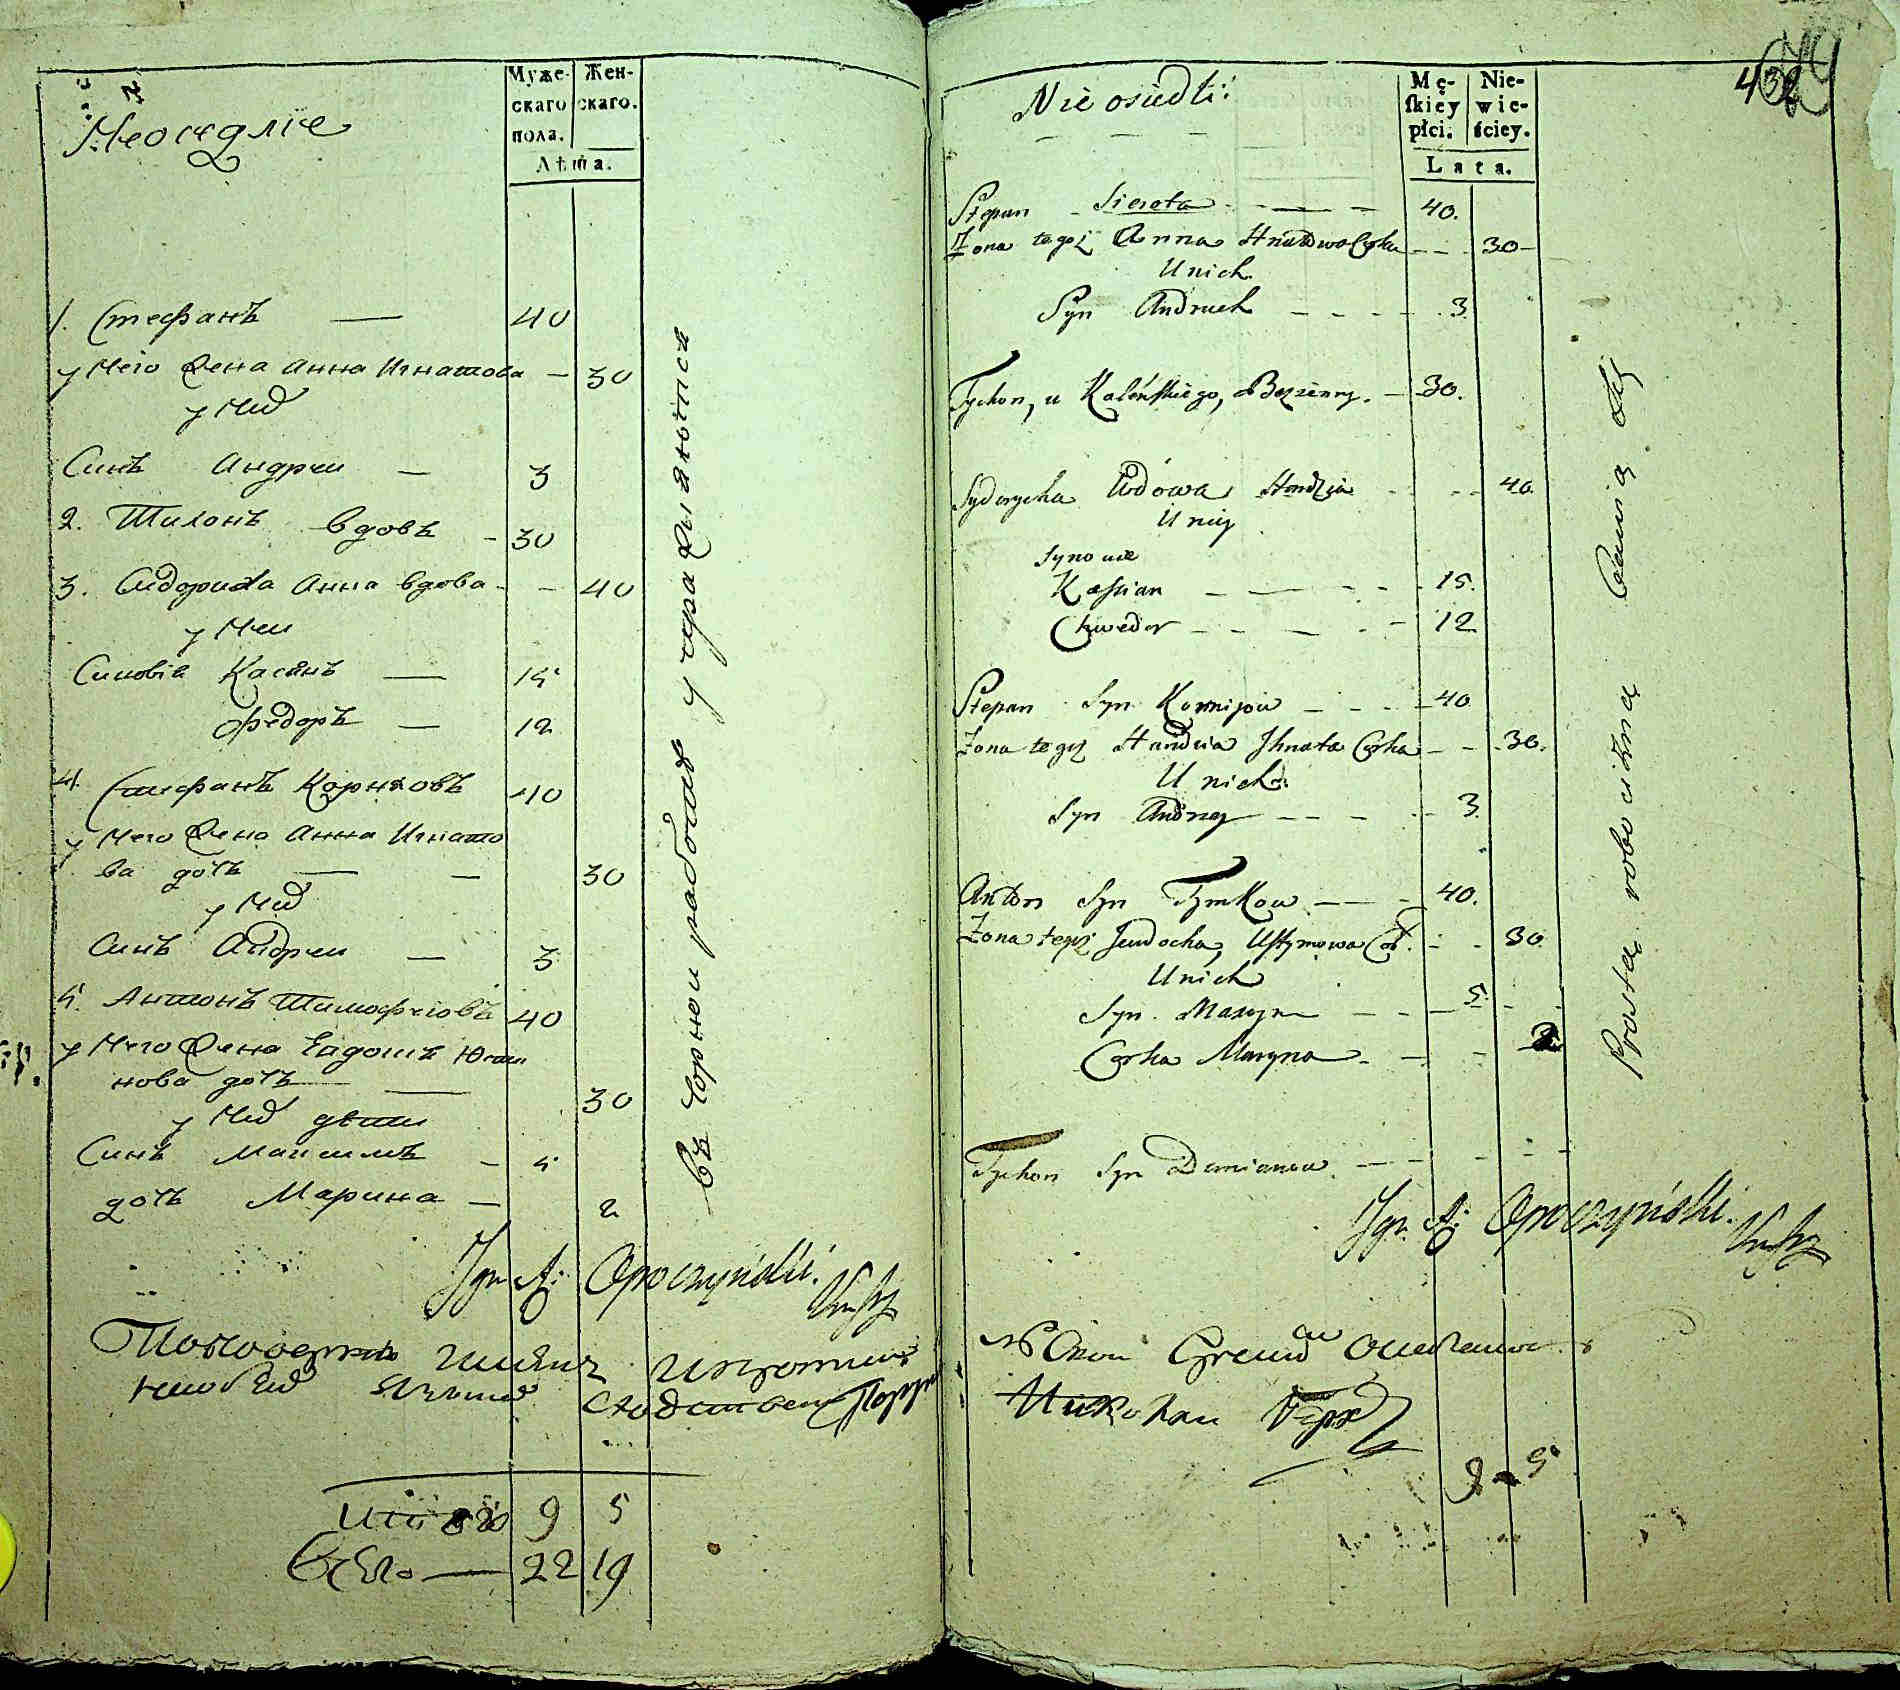 Муже-
скаго
пола.
Жен-
скаго.
Лѣта.
Неоседліе
1. Стефанъ — 40
у Него Жена Анна Игнатова — 30
у Них
Синъ Андреи — 3
2. Тихонъ Вдовъ — 30
3. Сидориха Анна вдова - — 40
у Неи
Синовія Касянъ — 15
Федоръ — 12
4. Стефанъ Корнѣовъ 40
у Него Жена Анна Игнато
ва дочь — — 30
у Них
Синъ Андреи — 3
5. Антонъ Тимофеіовъ 40
у Него Жена Евдокія Юсти
нова дочь — 30
у Них дѣти
Синъ Максимъ - 5
дочь Марина — 2
въ чорнои работѣ упражняются
A: Opoczyński.
Итого 9 5
Всего — 22 19
Nie osiedli:
Mę-
skiey
płci.
Nie-
wie-
ściey.
Lata.
Stepan - Sierota - — — 40.
Żona tegoż Anna Hnatowa Corka — - 30 -
U nich
Syn Andruch - - - - 3
Tychon, u Kaleńskiego, Bezżenny. - 30.
Sydorycha Wdowa Handzia - - - 40.
U niey
Synowie
Kassian - — - - 15.
Chwedor - - — - 12
Stepan Syn Kornijow - - - 40
Żona tegoż Handzia Ihnata Corka - - 30.
U nich:
Syn Andrzey - - - - 3.
Anton Syn Tymkow — - 40.
Żona tegoż Jewdocha, Ustymowa Cor. - - 30
U nich
Syn. Maxym - - - 5. - -
Corka Maryna - - - 2
Tychon Syn Demianow. - - - - -
Prostą robocizną bawią się
A: Opoczyński.
9 - 5